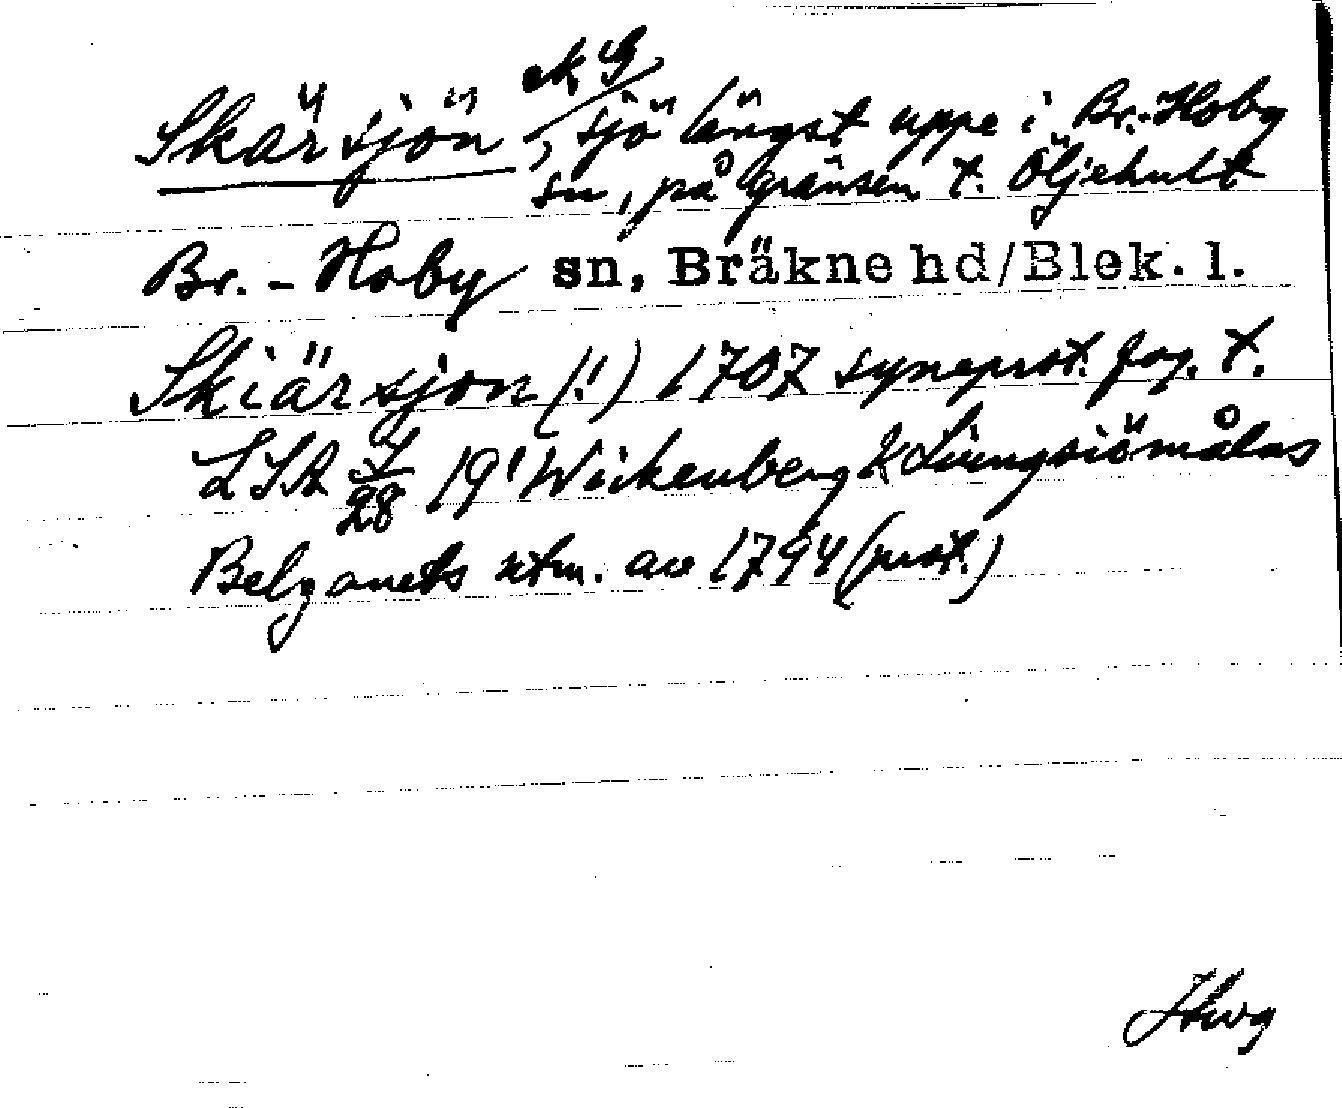 Skärsjön, sjö längst uppe i Br.-Hoby
sn, på gränsen t. Öljehult
Br. - Hoby sn, Bräkne hd/Blek. l.
Skiärsjon (!) 1707 syneprot. fog. t.
LSA 28 19' Wickenberg & Liungsiömålas
Belganets utm. av 1794 (prot.)